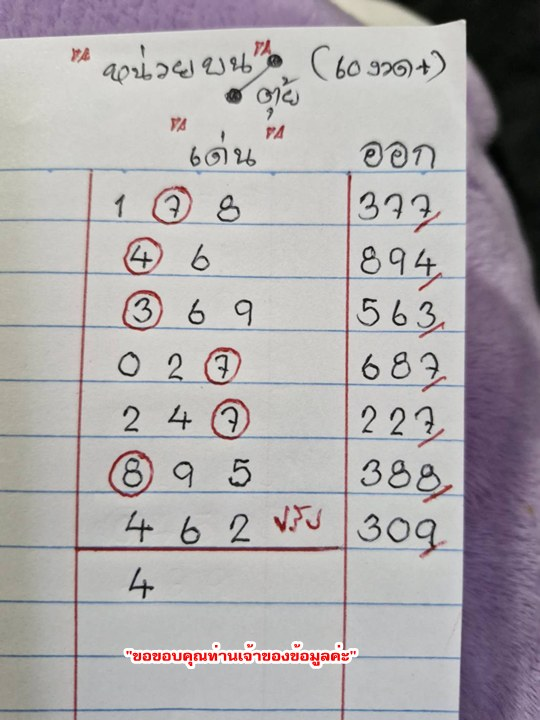 หน่วยบน (60 งวด+)
ตุ้ย
เด่น ออก
1 7 8 377
4 6 894
3 6 9 563
0 2 7 687
2 4 7 227
8 9 5 388
4 6 2 ปรับ 309
4
"ขอขอบคุณท่านเจ้าของข้อมูลค่ะ"